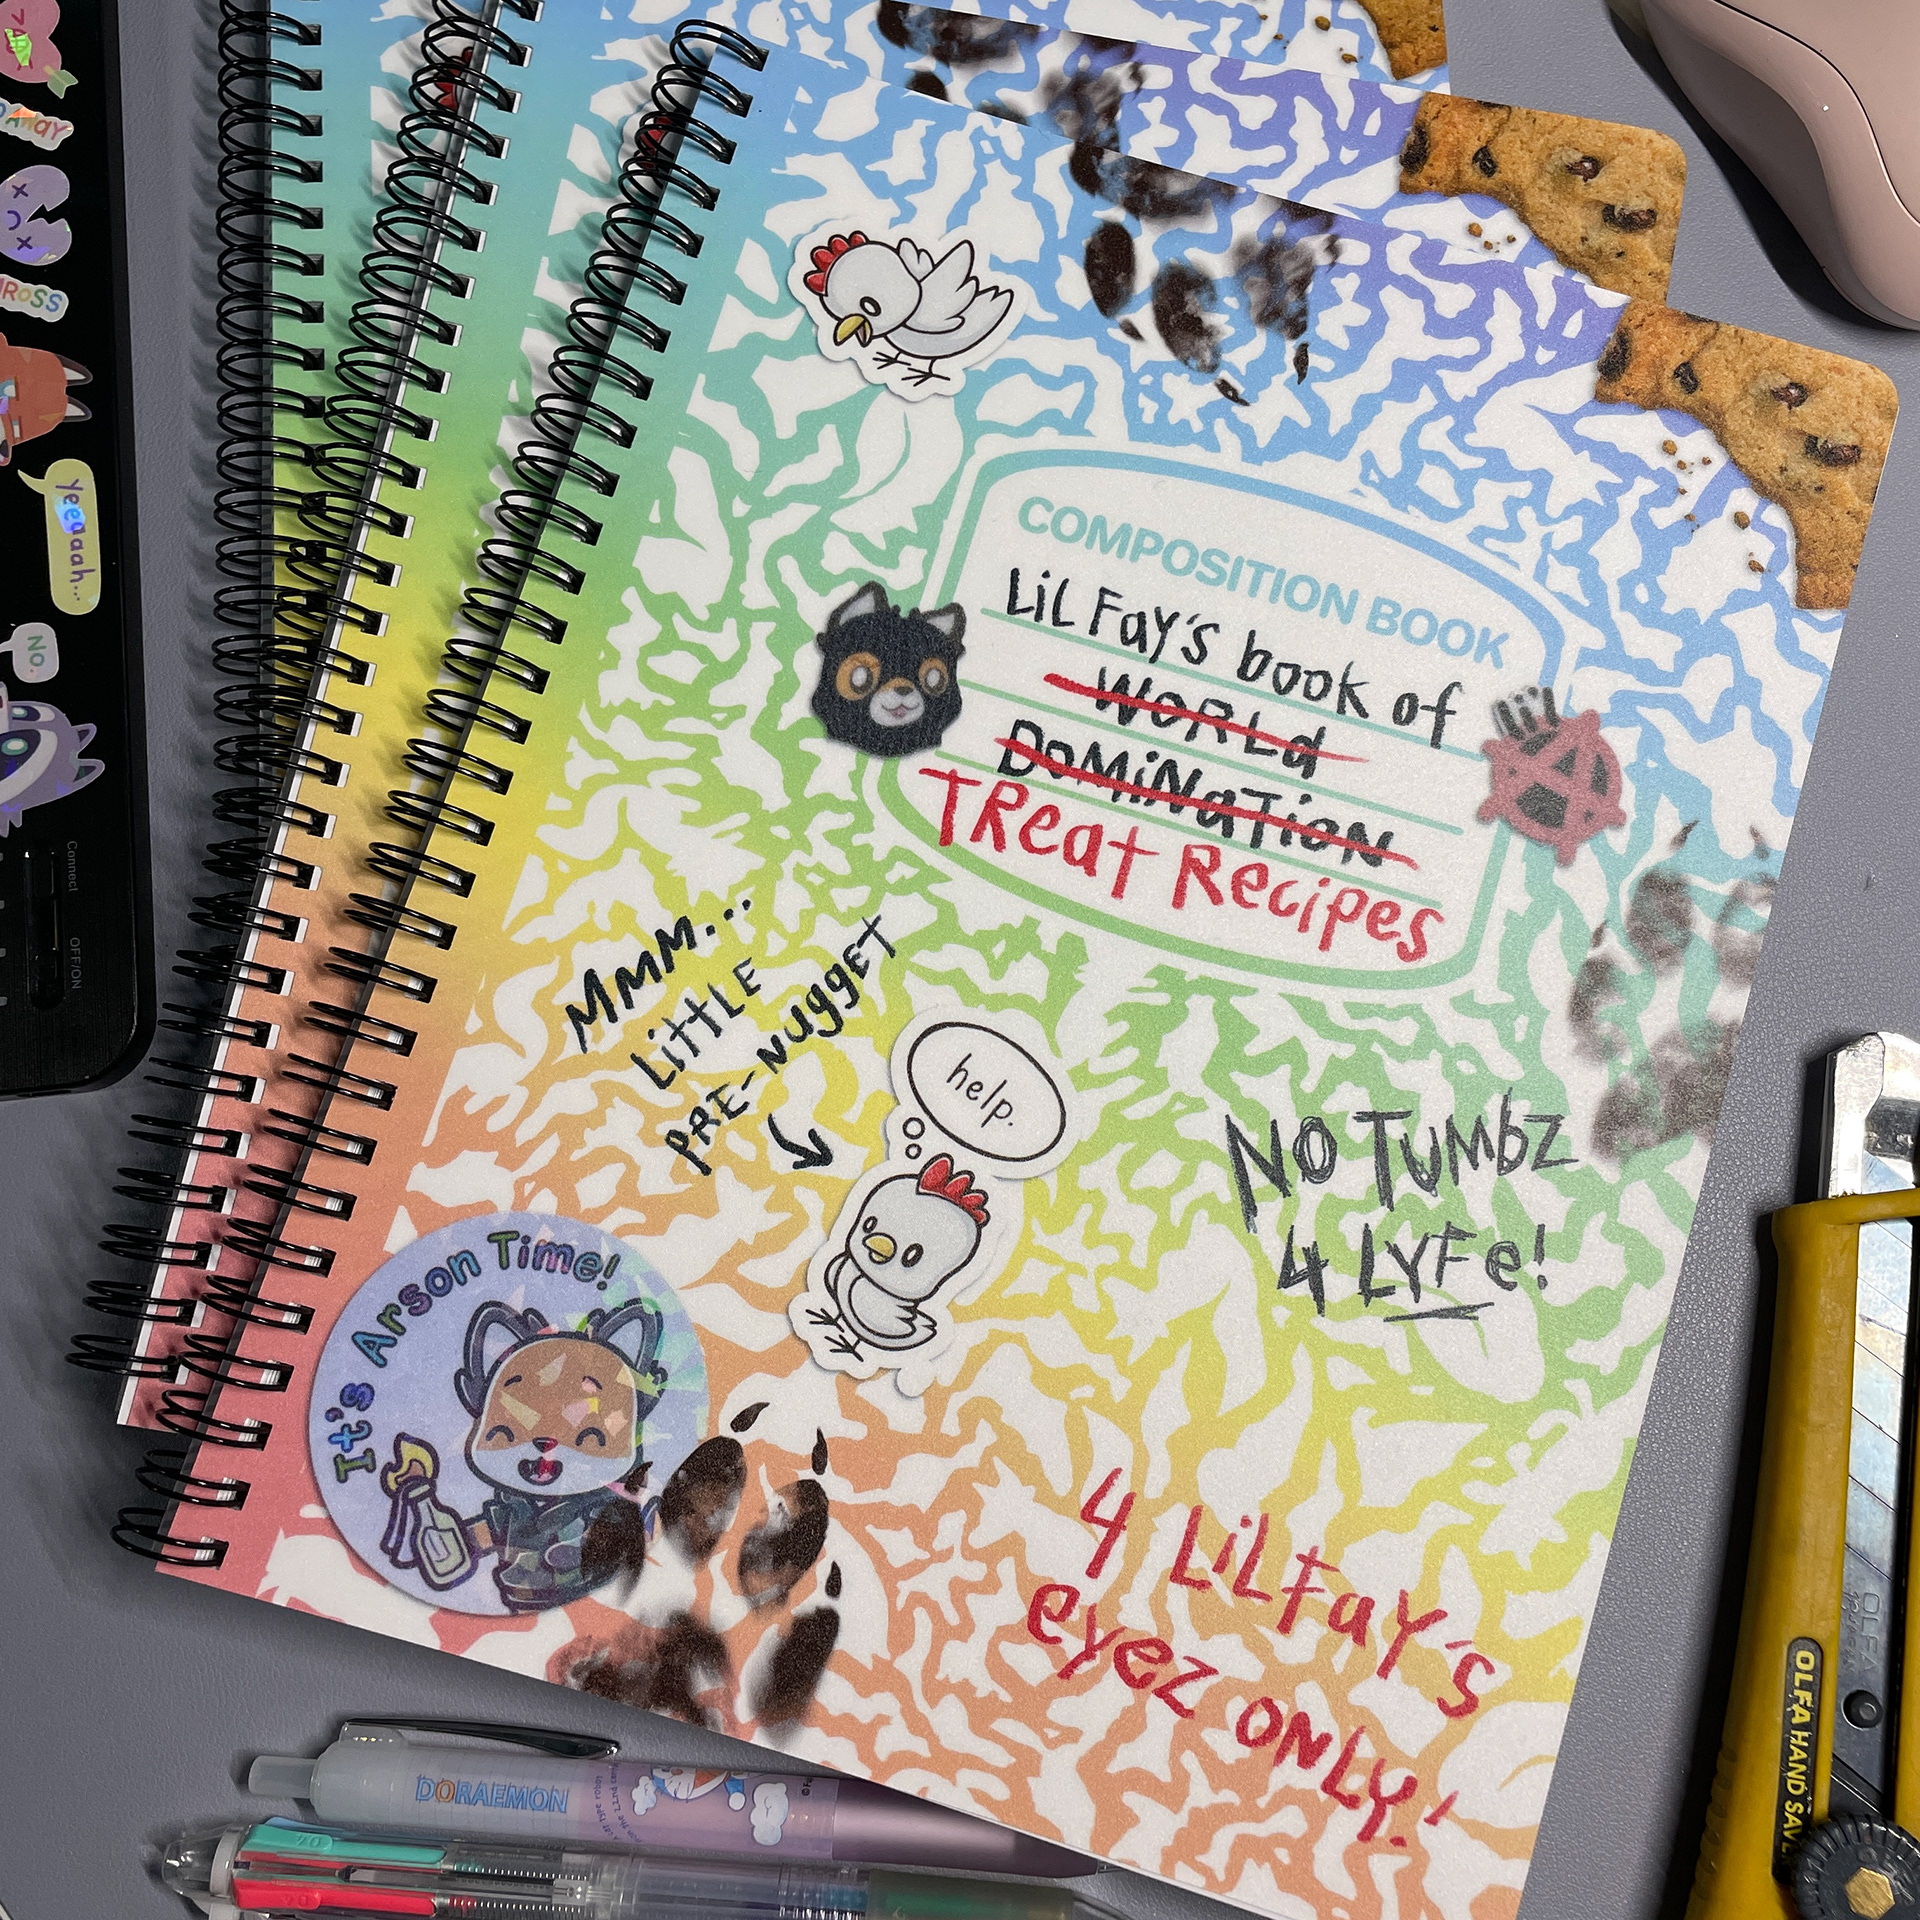 COMPOSITION BOOK
LiL Fay's book of
WORLd
DoMiNaTioN
TReat Recipes
MMM...
LittLE
PRE-Nugget
help.
NO TuMbZ
4 LYFe!
It's Arson Time!
4 LiLFaY's
eyez ONLY!
Yeeaaah...
No.
Connect
OFF/ON
DORAEMON
OLFA
OLFA HAND SAV